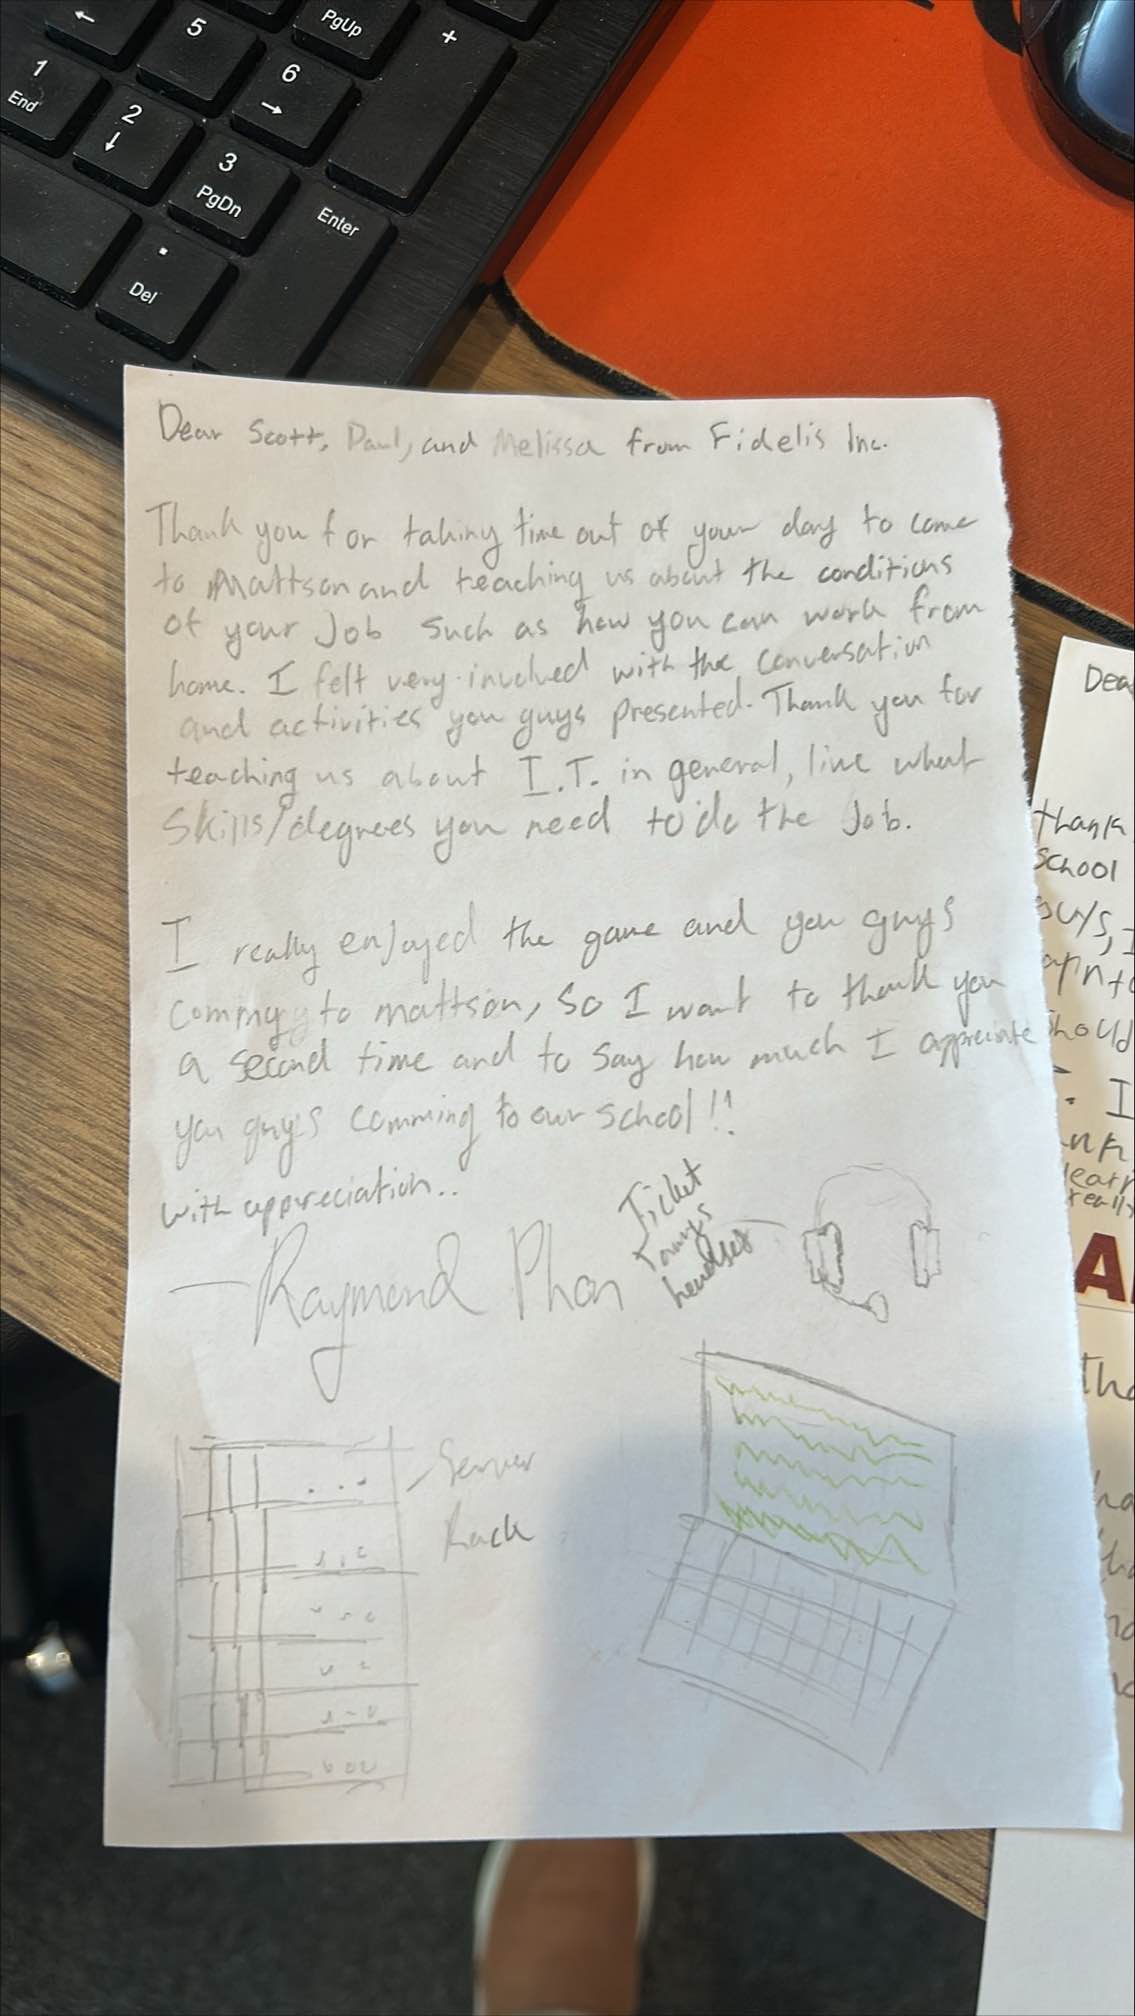 ←
5
PgUp
+
1
End
2
↓
6
→
3
PgDn
Enter
.
Del
Dear Scott, Paul, and Melissa from Fidelis Inc.
Thank you for taking time out of your day to come
to Mattson and teaching us about the conditions
of your Job such as how you can work from
home. I felt very involved with the conversation
and activities you guys presented. Thank you for
teaching us about I.T. in general, like what
Skills/degrees you need to do the Job.
I really enjoyed the game and you guys
comming to mattson, so I want to thank you
a second time and to say how much I appreciate
you guys comming to our school!!
with appreciation..
— Raymond Phan
Ticket
headset
Server
Rack
Dea
thank
school
guys, I
should
I
learn
really
A